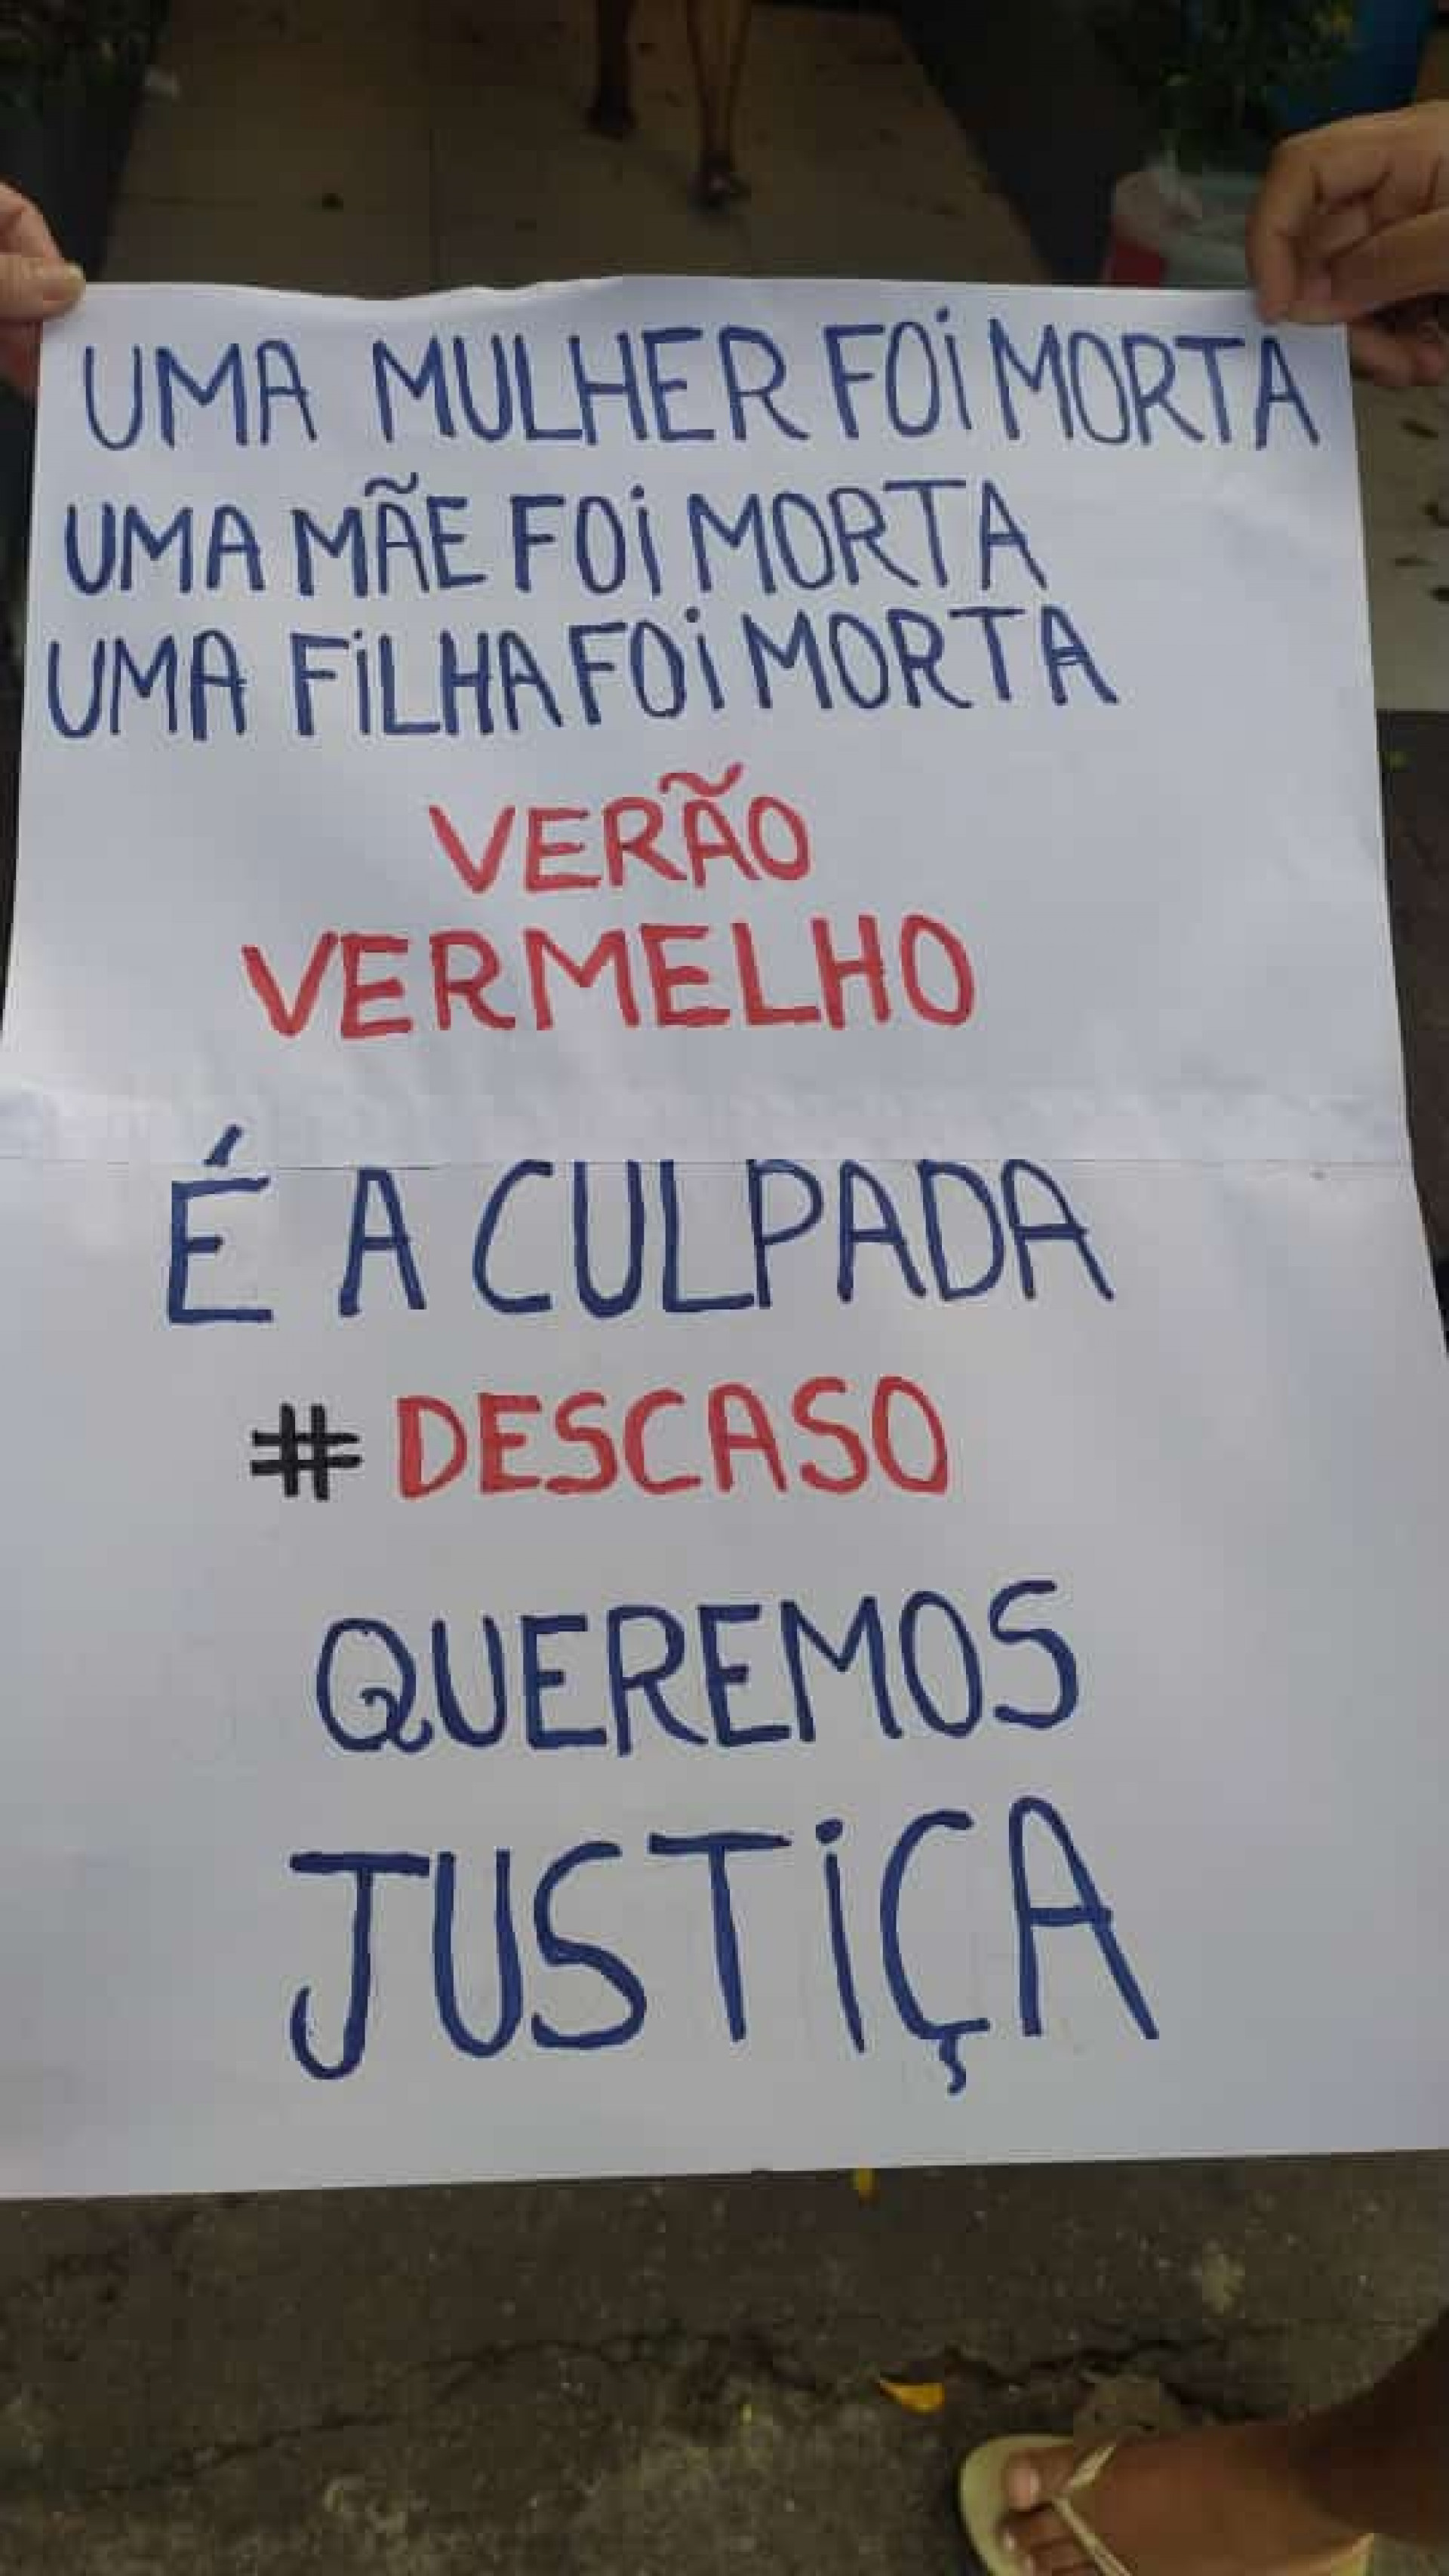 UMA MULHER FOI MORTA
UMA MÃE FOI MORTA
UMA FILHA FOI MORTA
VERÃO
VERMELHO
É A CULPADA
# DESCASO
QUEREMOS
JUSTIÇA